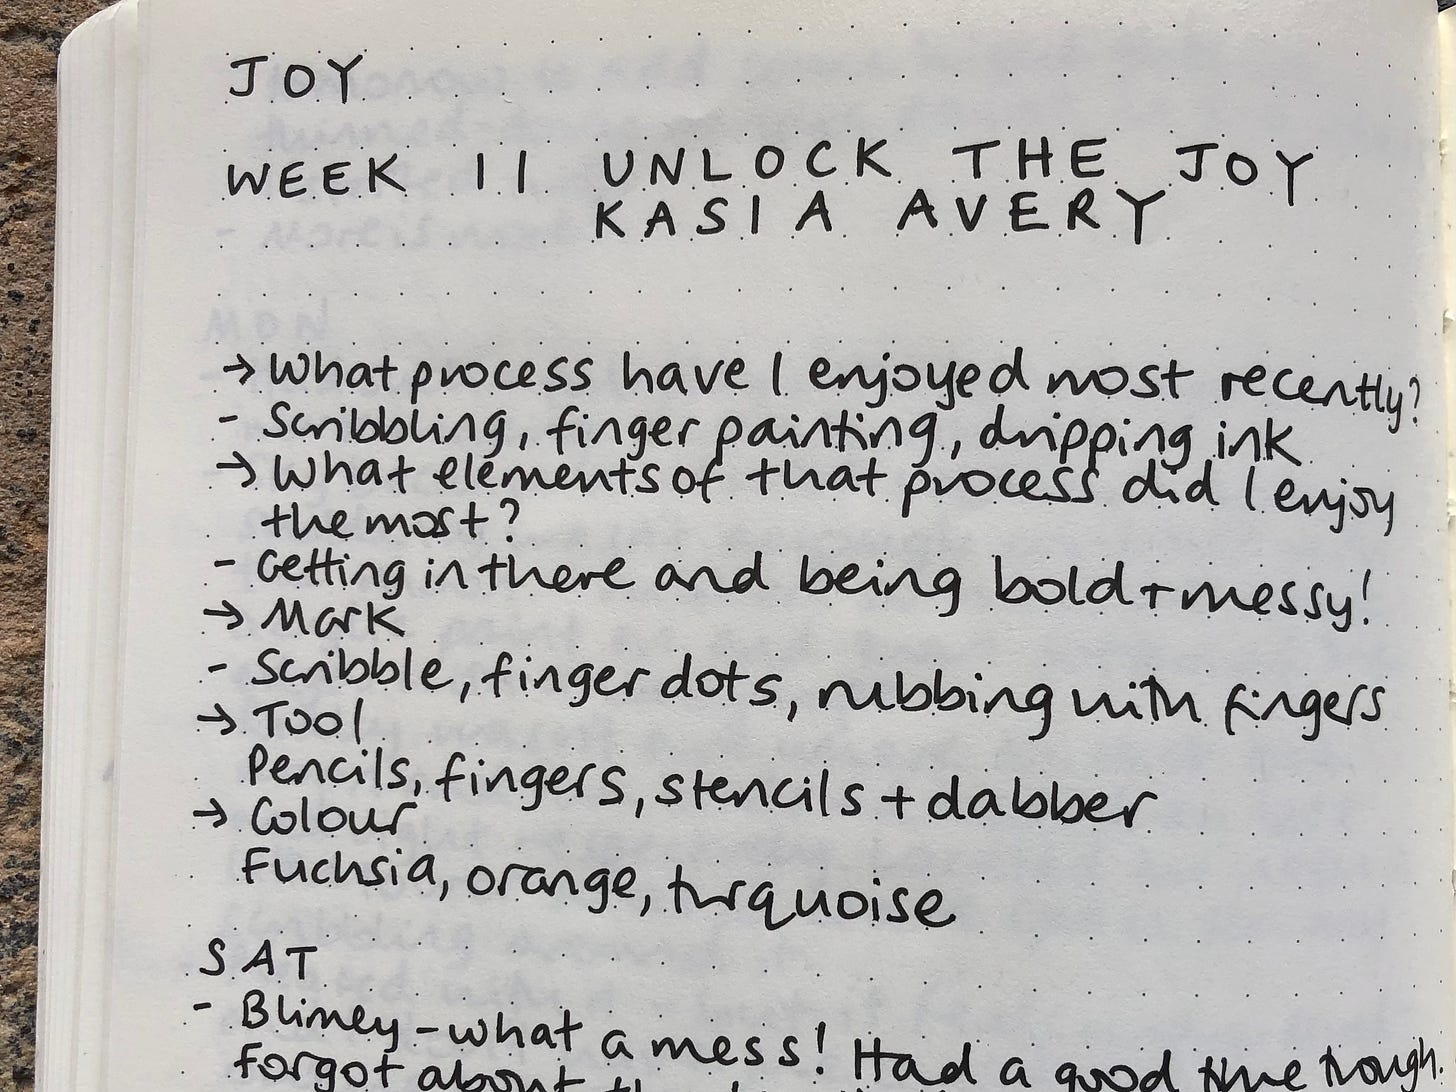 JOY
WEEK 11 UNLOCK THE JOY
KASIA AVERY
→ What process have I enjoyed most recently?
- Scribbling, finger painting, dripping ink
→ What elements of that process did I enjoy
the most?
- Getting in there and being bold + messy!
→ Mark
- Scribble, finger dots, rubbing with fingers
→ Tool
Pencils, fingers, stencils + dabber
→ Colour
Fuchsia, orange, turquoise
SAT
- Blimey - what a mess! Had a good time though.
forgot about the